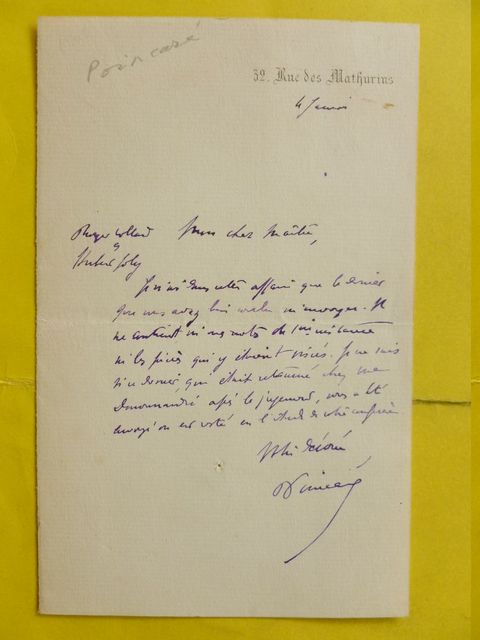 Poincaré
52. Rue des Mathurins
4 Janvier
Mon cher Maître,
Je n'ai dans cette affaire que le dossier
que vous avez bien voulu m'envoyer. Il
ne contient ni nos notes de 1re instance
ni les pièces qui y étaient visées. Je ne sais
si ce dossier, qui était chez me
après le jugement, vous a été
envoyé ou est resté en l'étude de votre confrère.
Votre dévoué,
Poincaré